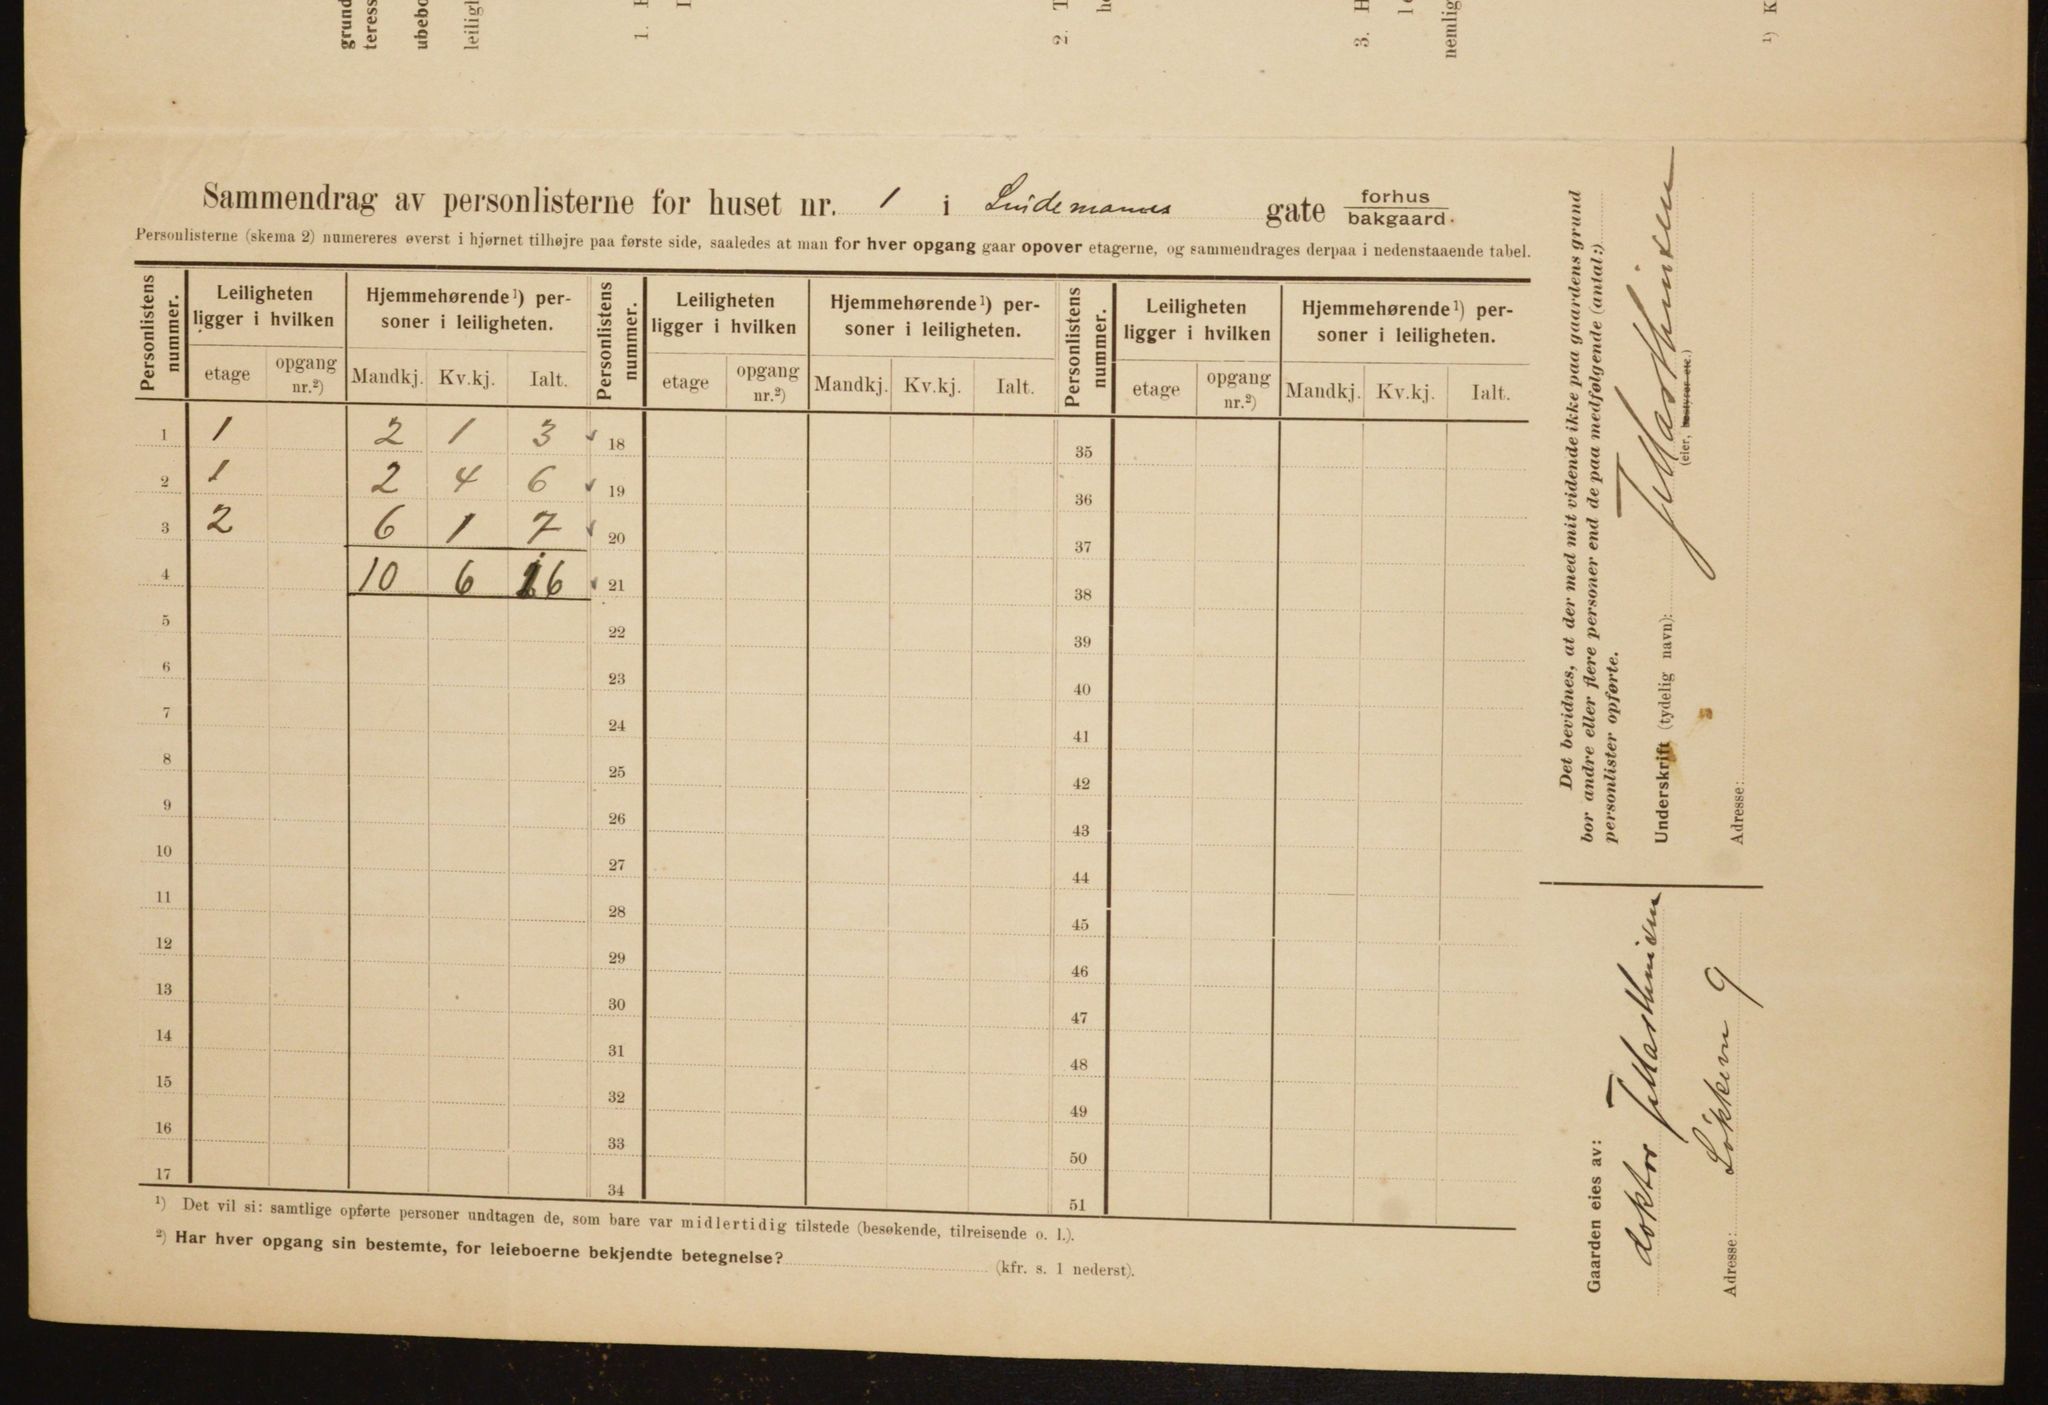 grund
teress
ubebo
leiligh
1.
2. T
3. H
nemlig
¹) K
Sammendrag av personlisterne for huset nr. 1 i Lindemannes gate forhus
bakgaard.
Personlisterne (skema 2) numereres øverst i hjørnet tilhøjre paa første side, saaledes at man for hver opgang gaar opover etagerne, og sammendrages derpaa i nedenstaaende tabel.
Personlistens nummer. Leiligheten ligger i hvilken Hjemmehørende¹) per-soner i leiligheten. Personlistens nummer. Leiligheten ligger i hvilken Hjemmehørende¹) per-soner i leiligheten. Personlistens nummer. Leiligheten ligger i hvilken Hjemmehørende¹) per-soner i leiligheten.
etage opgang nr.²) Mandkj. Kv.kj. Ialt. etage opgang nr.²) Mandkj. Kv.kj. Ialt. etage opgang nr.²) Mandkj. Kv.kj. Ialt.
1 1 2 1 3 18 35
2 1 2 4 6 19 36
3 2 6 1 7 20 37
4 10 6 16 21 38
5 22 39
6 23 40
7 24 41
8 25 42
9 26 43
10 27 44
11 28 45
12 29 46
13 30 47
14 31 48
15 32 49
16 33 50
17 34 51
¹) Det vil si: samtlige opførte personer undtagen de, som bare var midlertidig tilstede (besøkende, tilreisende o. l.).
²) Har hver opgang sin bestemte, for leieboerne bekjendte betegnelse? (kfr. s. 1 nederst).
Det bevidnes, at der med mit vidende ikke paa gaardens grund
bor andre eller flere personer end de paa medfølgende (antal:)
personlister opførte.
Underskrift (tydelig navn):
(eier, bestyrer etc.)
Adresse:
Gaarden eies av:
doktor
Adresse: Løkkevn 9